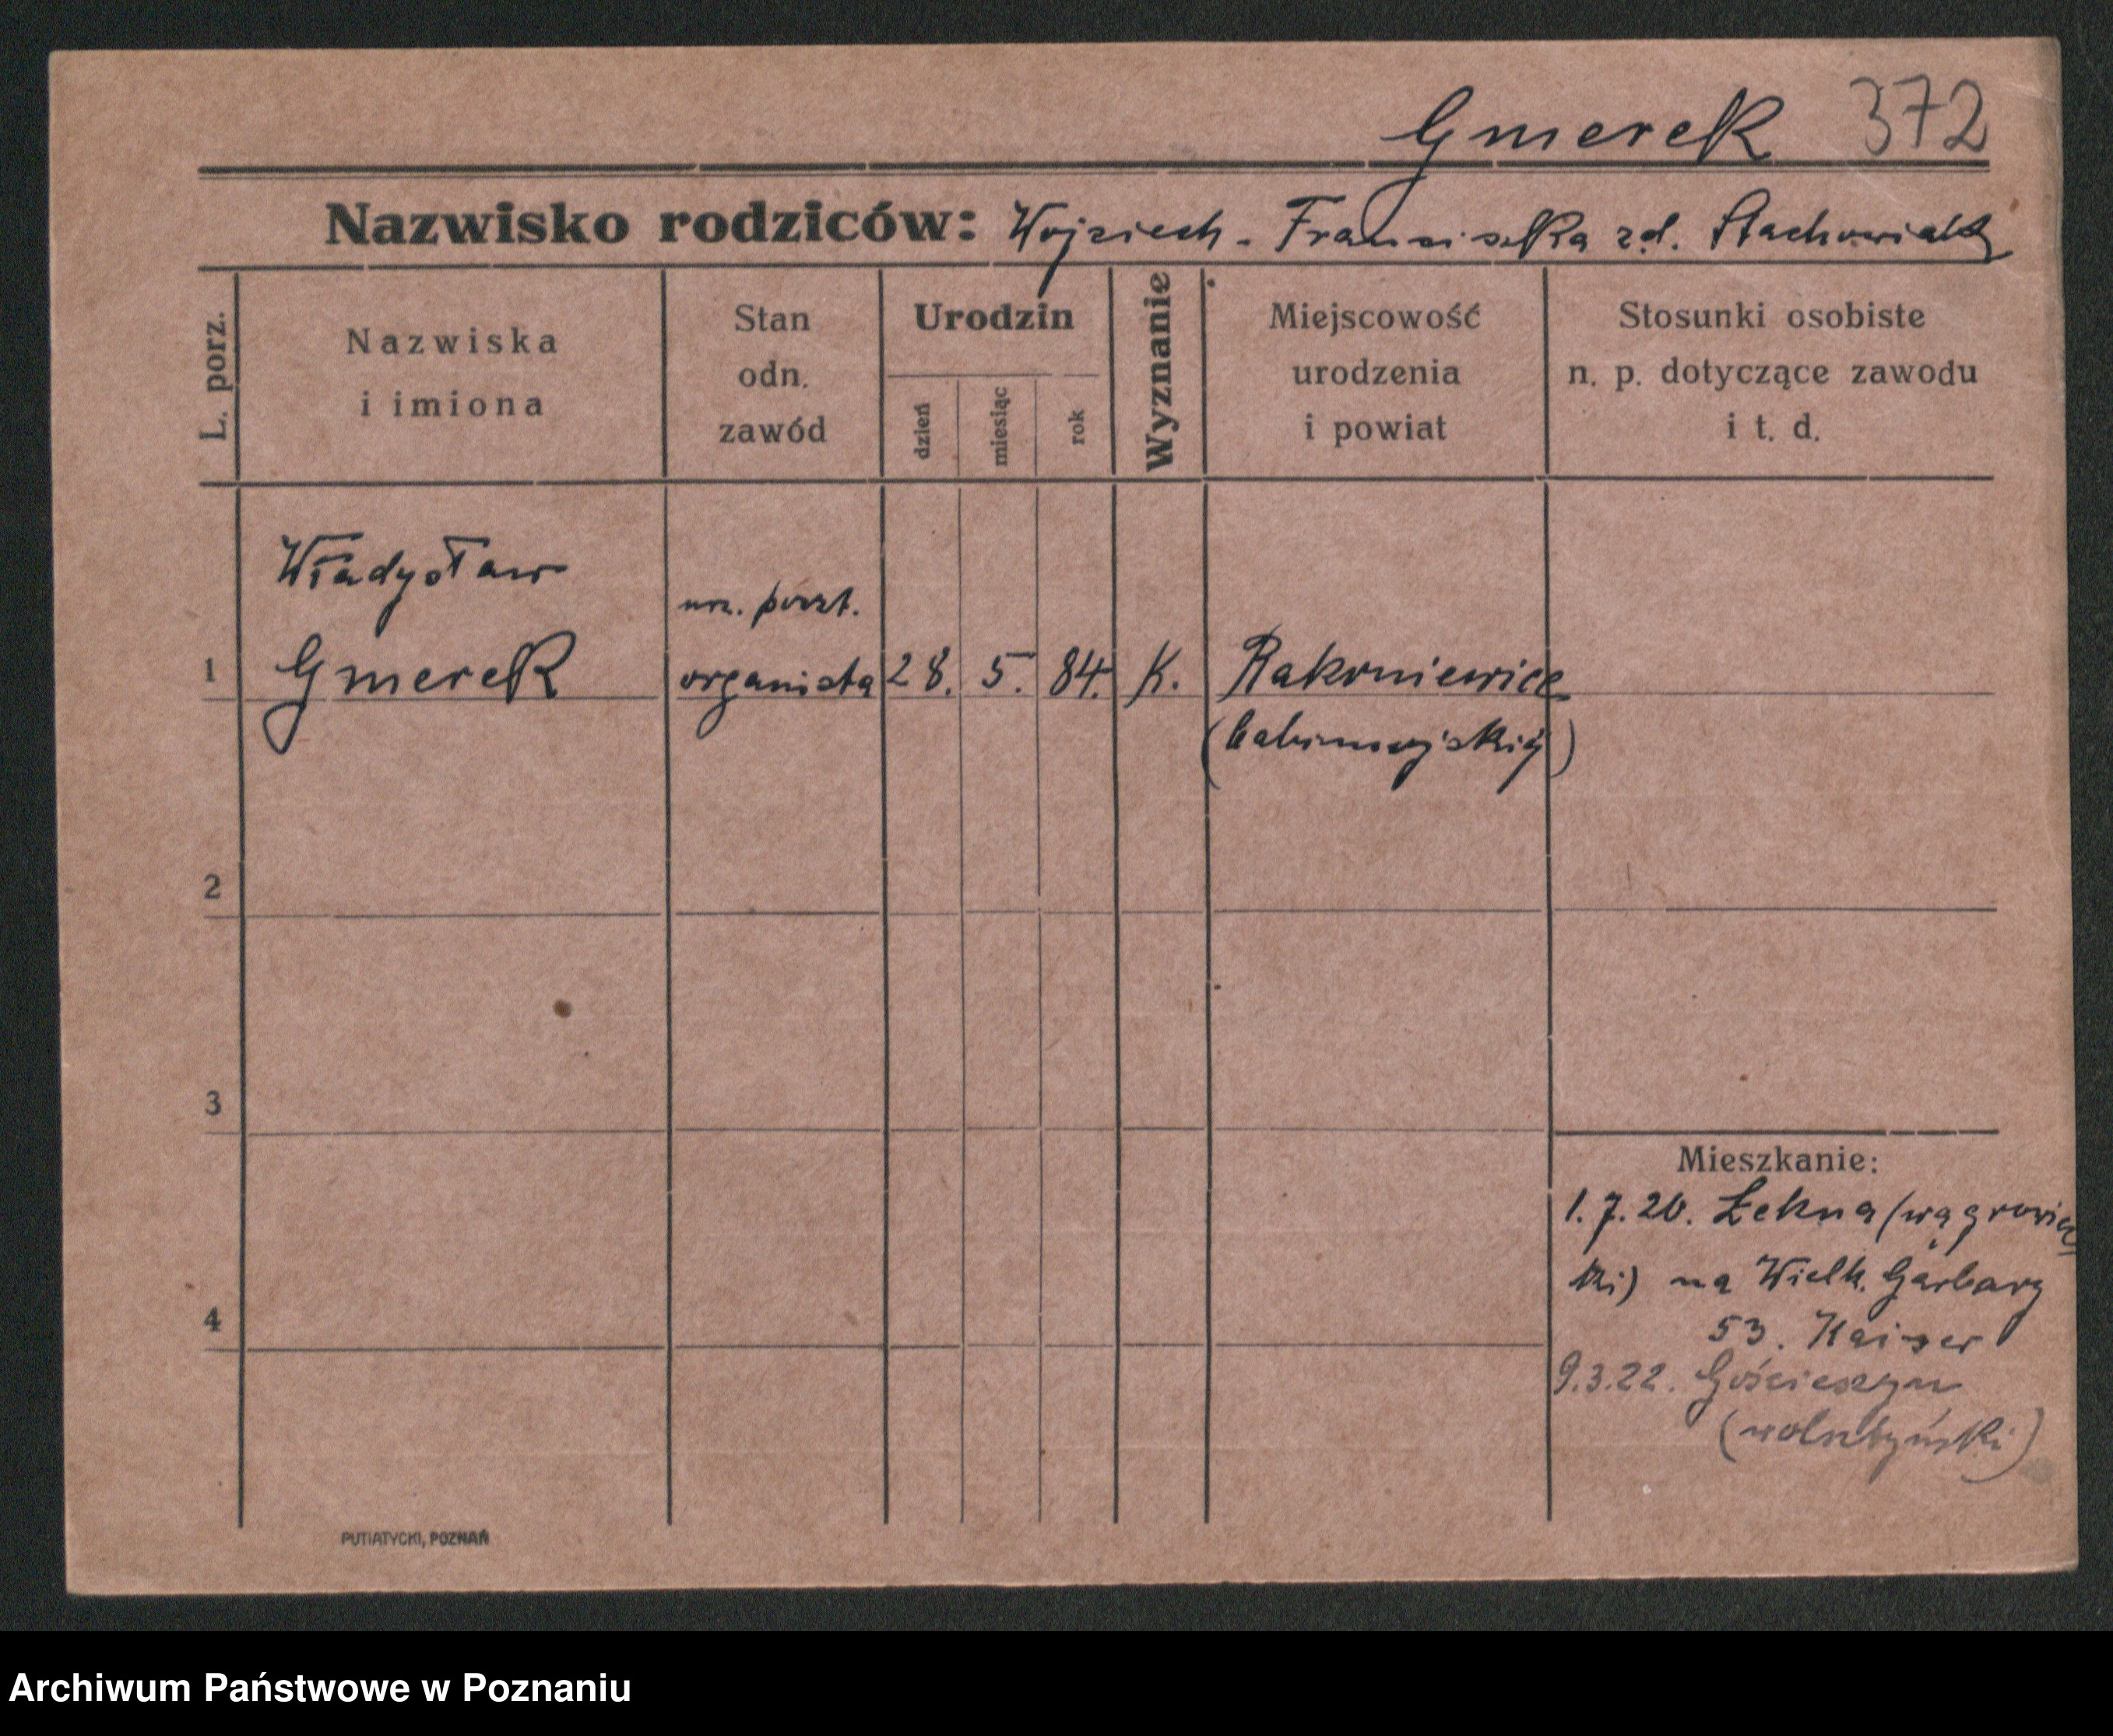 Gmerek 372
Nazwisko rodziców: Wojciech - Franciszka zd. Stachowiak
L. porz.
Nazwiska
i imiona
Stan
odn.
zawód
Urodzin
dzień
miesiąc
rok
Wyznanie
Miejscowość
urodzenia
i powiat
Stosunki osobiste
n. p. dotyczące zawodu
i t. d.
Władysław
urz. poczt.
1 Gmerek organista 28. 5. 84. K. Rakoniewice
(babimojski)
2
3
4
Mieszkanie:
1.7.20. Łekna (wągrowiec
ki) na Wielk. Garbary
53. Kaiser
9.3.22. Gościeszyn
(wolsztyński)
PUTIATYCKI, POZNAŃ
Archiwum Państwowe w Poznaniu